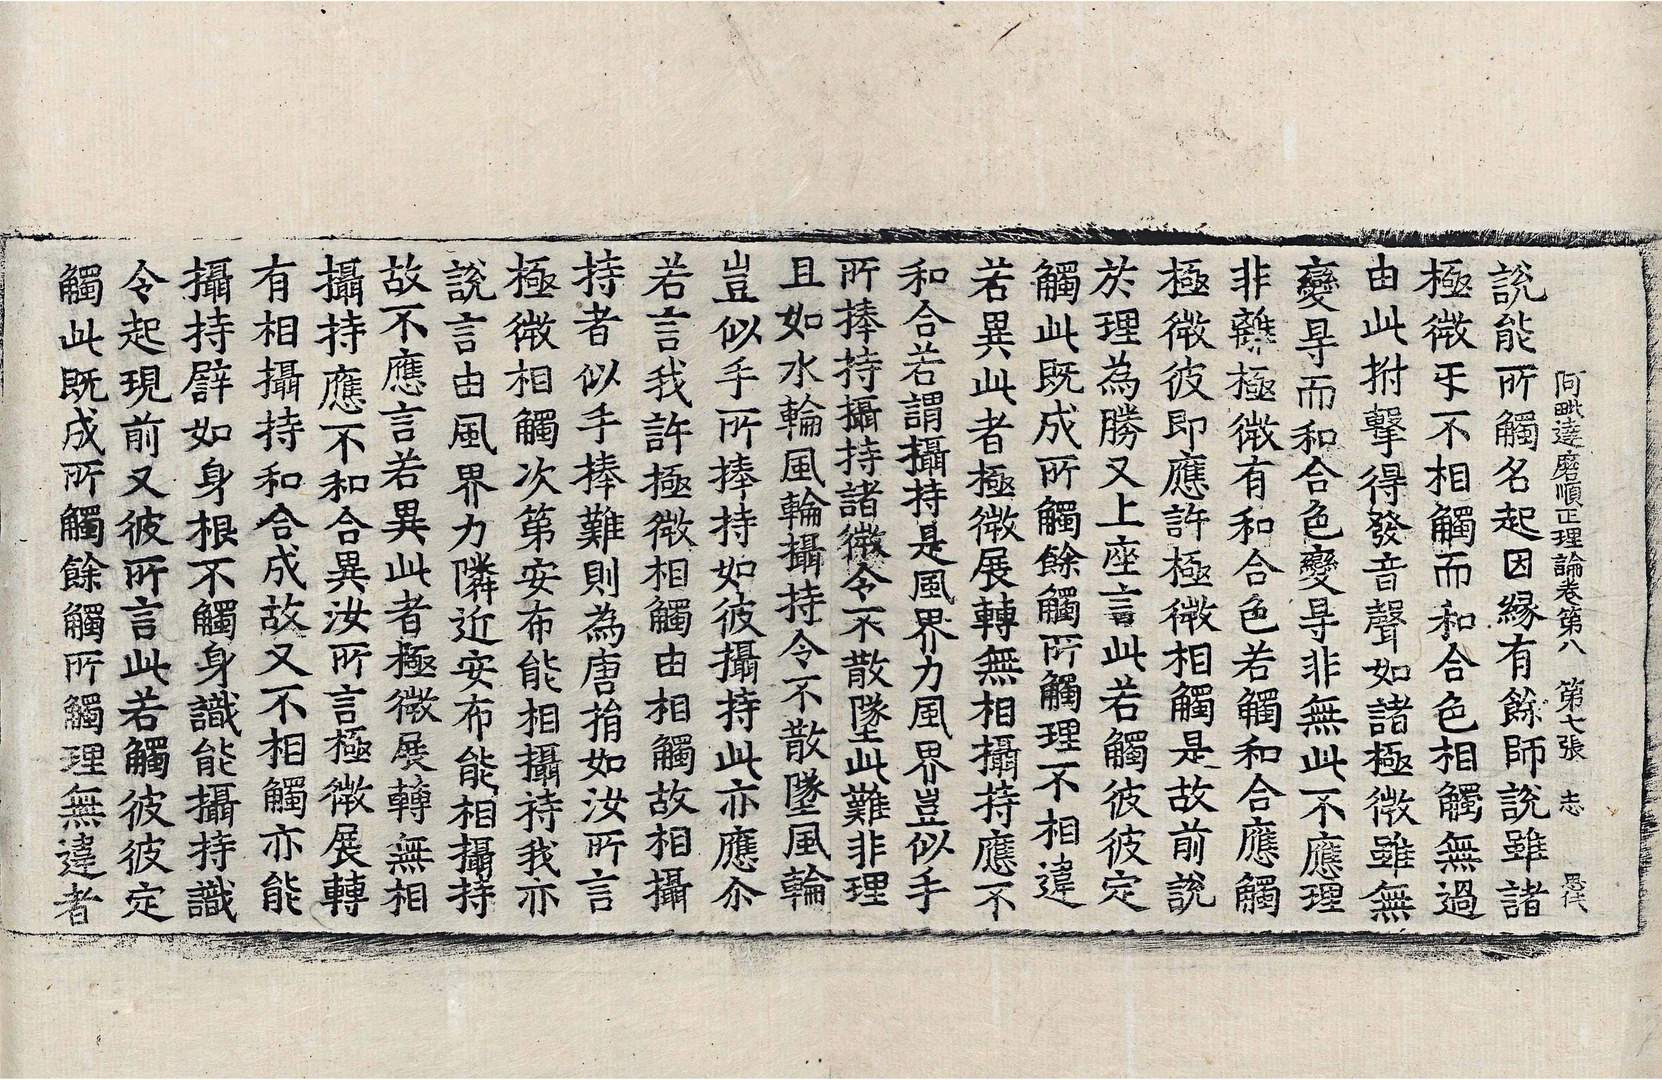 阿毗達磨順正理論卷第八　第七張　志
說能所觸名起因緣有餘師說雖諸
極微㸦不相觸而和合色相觸無過
由此拊擊得發音聲如諸極微雖無
變㝵而和合色變㝵非無此不應理
非離極微有和合色若觸和合應觸
極微彼即應許極微相觸是故前說
於理為勝又上座言此若觸彼彼定
觸此既成所觸餘觸所觸理不相違
若異此者極微展轉無相攝持應不
和合若謂攝持是風界力風界豈似手
所捧持攝持諸微令不散墜此難非理
且如水輪風輪攝持令不散墜風輪
豈似手所捧持如彼攝持此亦應尒
若言我許極微相觸由相觸故相攝
持者似手捧難則為唐捐如汝所言
極微相觸次第安布能相攝持我亦
說言由風界力隣近安布能相攝持
故不應言若異此者極微展轉無相
攝持應不和合異汝所言極微展轉
有相攝持和合成故又不相觸亦能
攝持譬如身根不觸身識能攝持識
令起現前又彼所言此若觸彼彼定
觸此既成所觸餘觸所觸理無違者